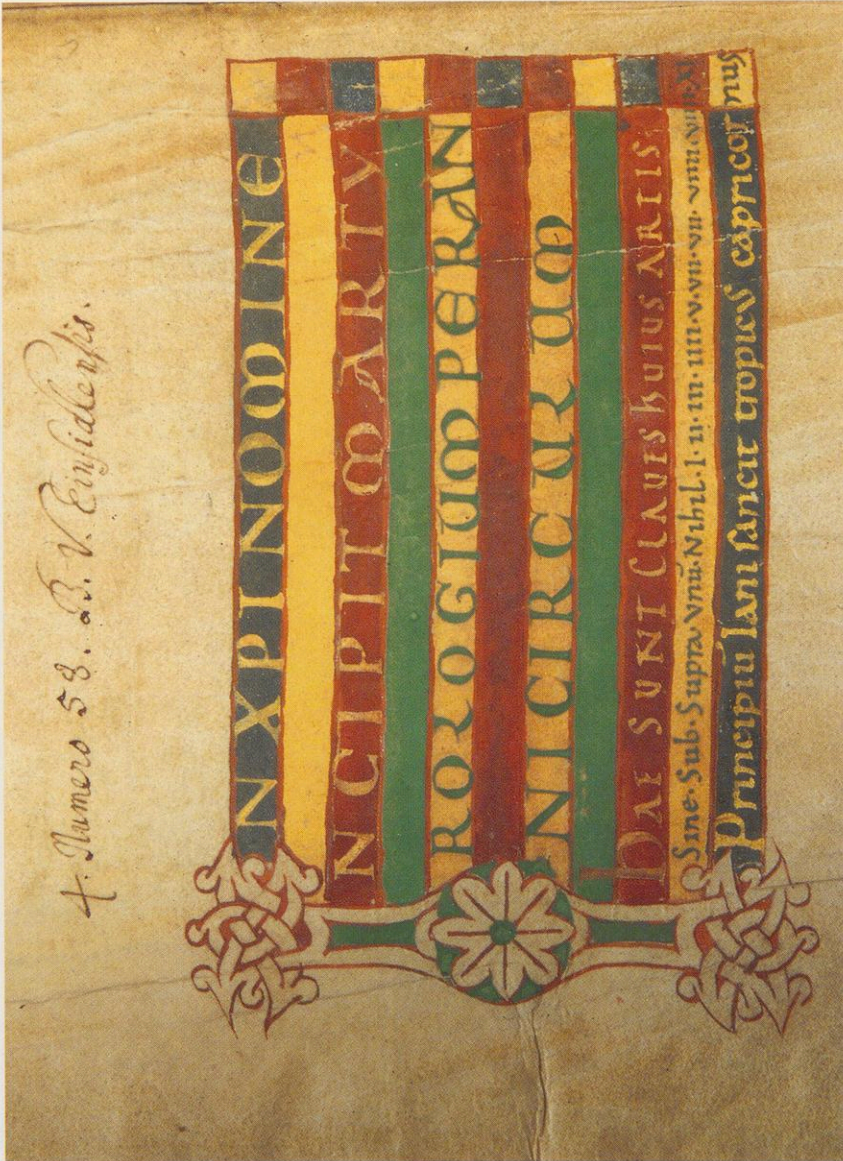 4. Numero B. V. Einsidlensis.
IN XPI NOMINE
NCIPIT MARTY
ROLOGIUM PER AN
NI CIRCULUM
HAE SUNT CLAVES hUIUS ARTIS:
Sine· Sub· Supra Vnū· Nihil· I· II· III· IIII· V· VII· VII· VIII·
Principiū Iani sancit tropicus capricornus